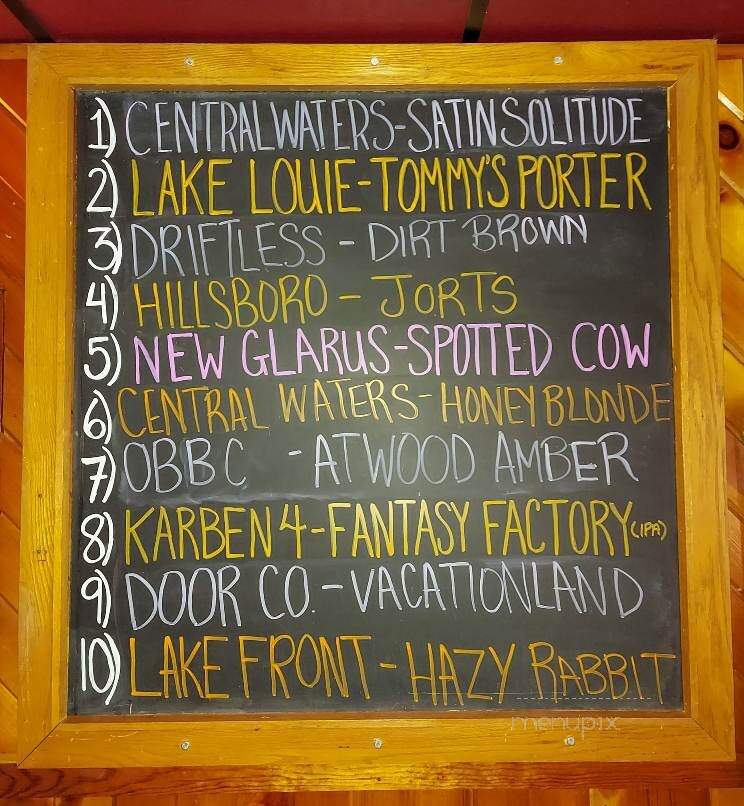 1) CENTRAL WATERS-SATIN SOLITUDE
2) LAKE LOUIE-TOMMY'S PORTER
3) DRIFTLESS - DIRT BROWN
4) HILLSBORO - JORTS
5) NEW GLARUS-SPOTTED COW
6) CENTRAL WATERS-HONEY BLONDE
7) OBBC - ATWOOD AMBER
8) KARBEN 4-FANTASY FACTORY (IPA)
9) DOOR CO. - VACATIONLAND
10) LAKE FRONT - HAZY RABBIT
menupix